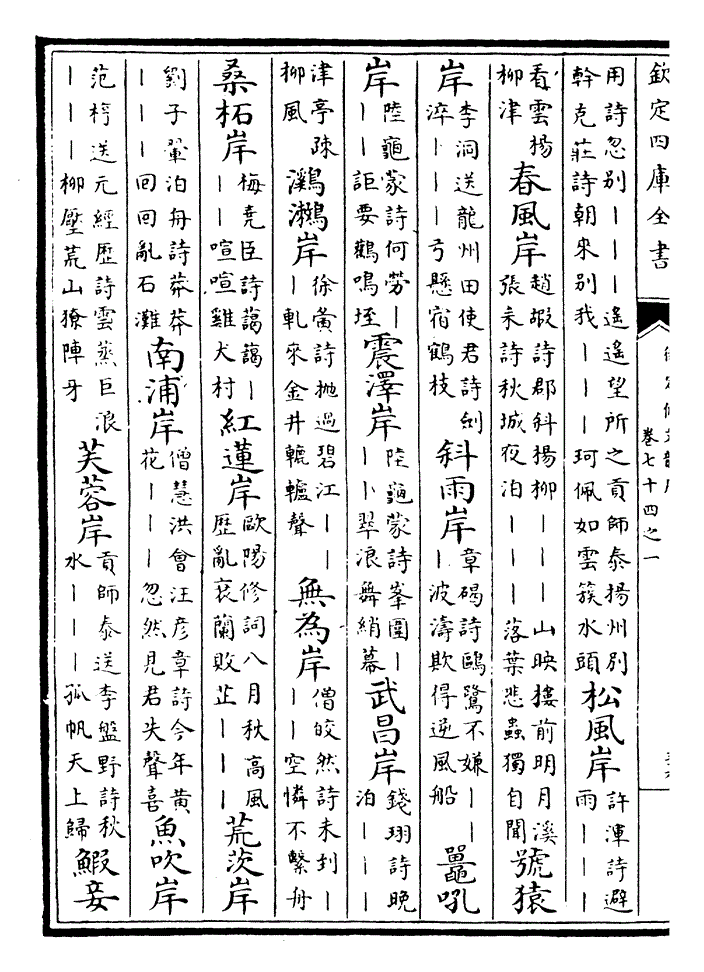 欽定四庫全書
卷七十四之一
用詩忽別丨丨丨遙遙望所之貢師泰揚州別幹克莊詩朝來別我丨丨丨珂佩如雲簇水頭松風岸許渾詩避雨丨丨丨
看雲楊柳津春風岸趙嘏詩郡斜楊柳丨丨丨山映樓前明月溪張耒詩秋城夜泊丨丨丨落葉悲蟲獨自聞號猿
岸李洞送龍州田使君詩劍淬丨丨丨弓懸宿鶴枝斜雨岸章碣詩鷗鷺不嫌丨丨丨波濤欺得逆風船鼉吼
岸陸龜蒙詩何勞丨丨丨詎要鸛鳴垤震澤岸陸龜蒙詩峯圍丨丨丨卜翠浪舞綃幕武昌岸錢珝詩晚泊丨丨丨
津亭疎柳風鸂鷘岸徐黃詩拋過碧江丨丨丨軋來金井轆轤聲無為岸僧皎然詩未到丨丨丨空憐不繫舟
桑柘岸梅堯臣詩藹藹丨丨丨喧喧雞犬村紅蓮岸歐陽修詞八月秋高風歷亂衰蘭敗芷丨丨丨荒茨岸
劉子翬泊舟詩莽莽丨丨丨回回亂石灘南浦岸僧慧洪會汪彥章詩今年黃花丨丨丨忽然見君失聲喜魚吹岸
范梈送元經歷詩雲蒸巨浪丨丨丨柳壓荒山獠陣牙芙蓉岸貢師泰送李盤野詩秋水丨丨丨孤帆天上歸鰕妾